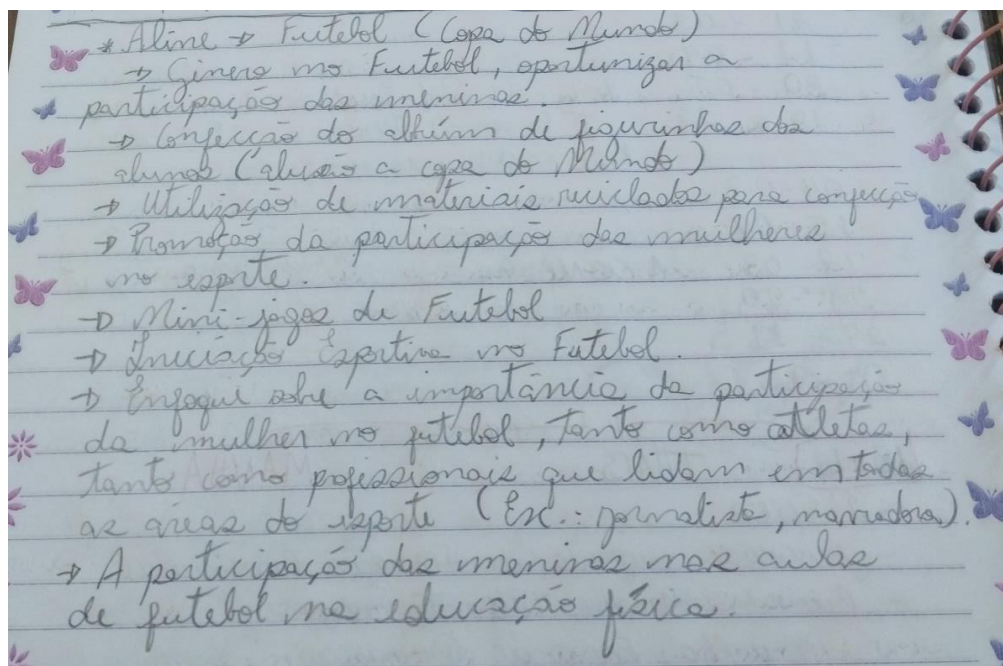 * Aline → Futebol (Copa do Mundo)
→ Gênero no Futebol, oportunizar a
participação das meninas.
→ Confecção do álbum de figurinhas dos
alunos (alusão a copa do Mundo)
→ Utilização de materiais reciclados para confecção
→ Promoção da participação das mulheres
no esporte.
→ Mini-jogos de Futebol
→ Iniciação Esportiva no Futebol.
→ Enfoque sobre a importância da participação
da mulher no futebol, tanto como atletas,
tanto como profissionais que lidam em todas
as áreas do esporte (Ex.: jornalista, narradora).
→ A participação das meninas nas aulas
de futebol na educação física.